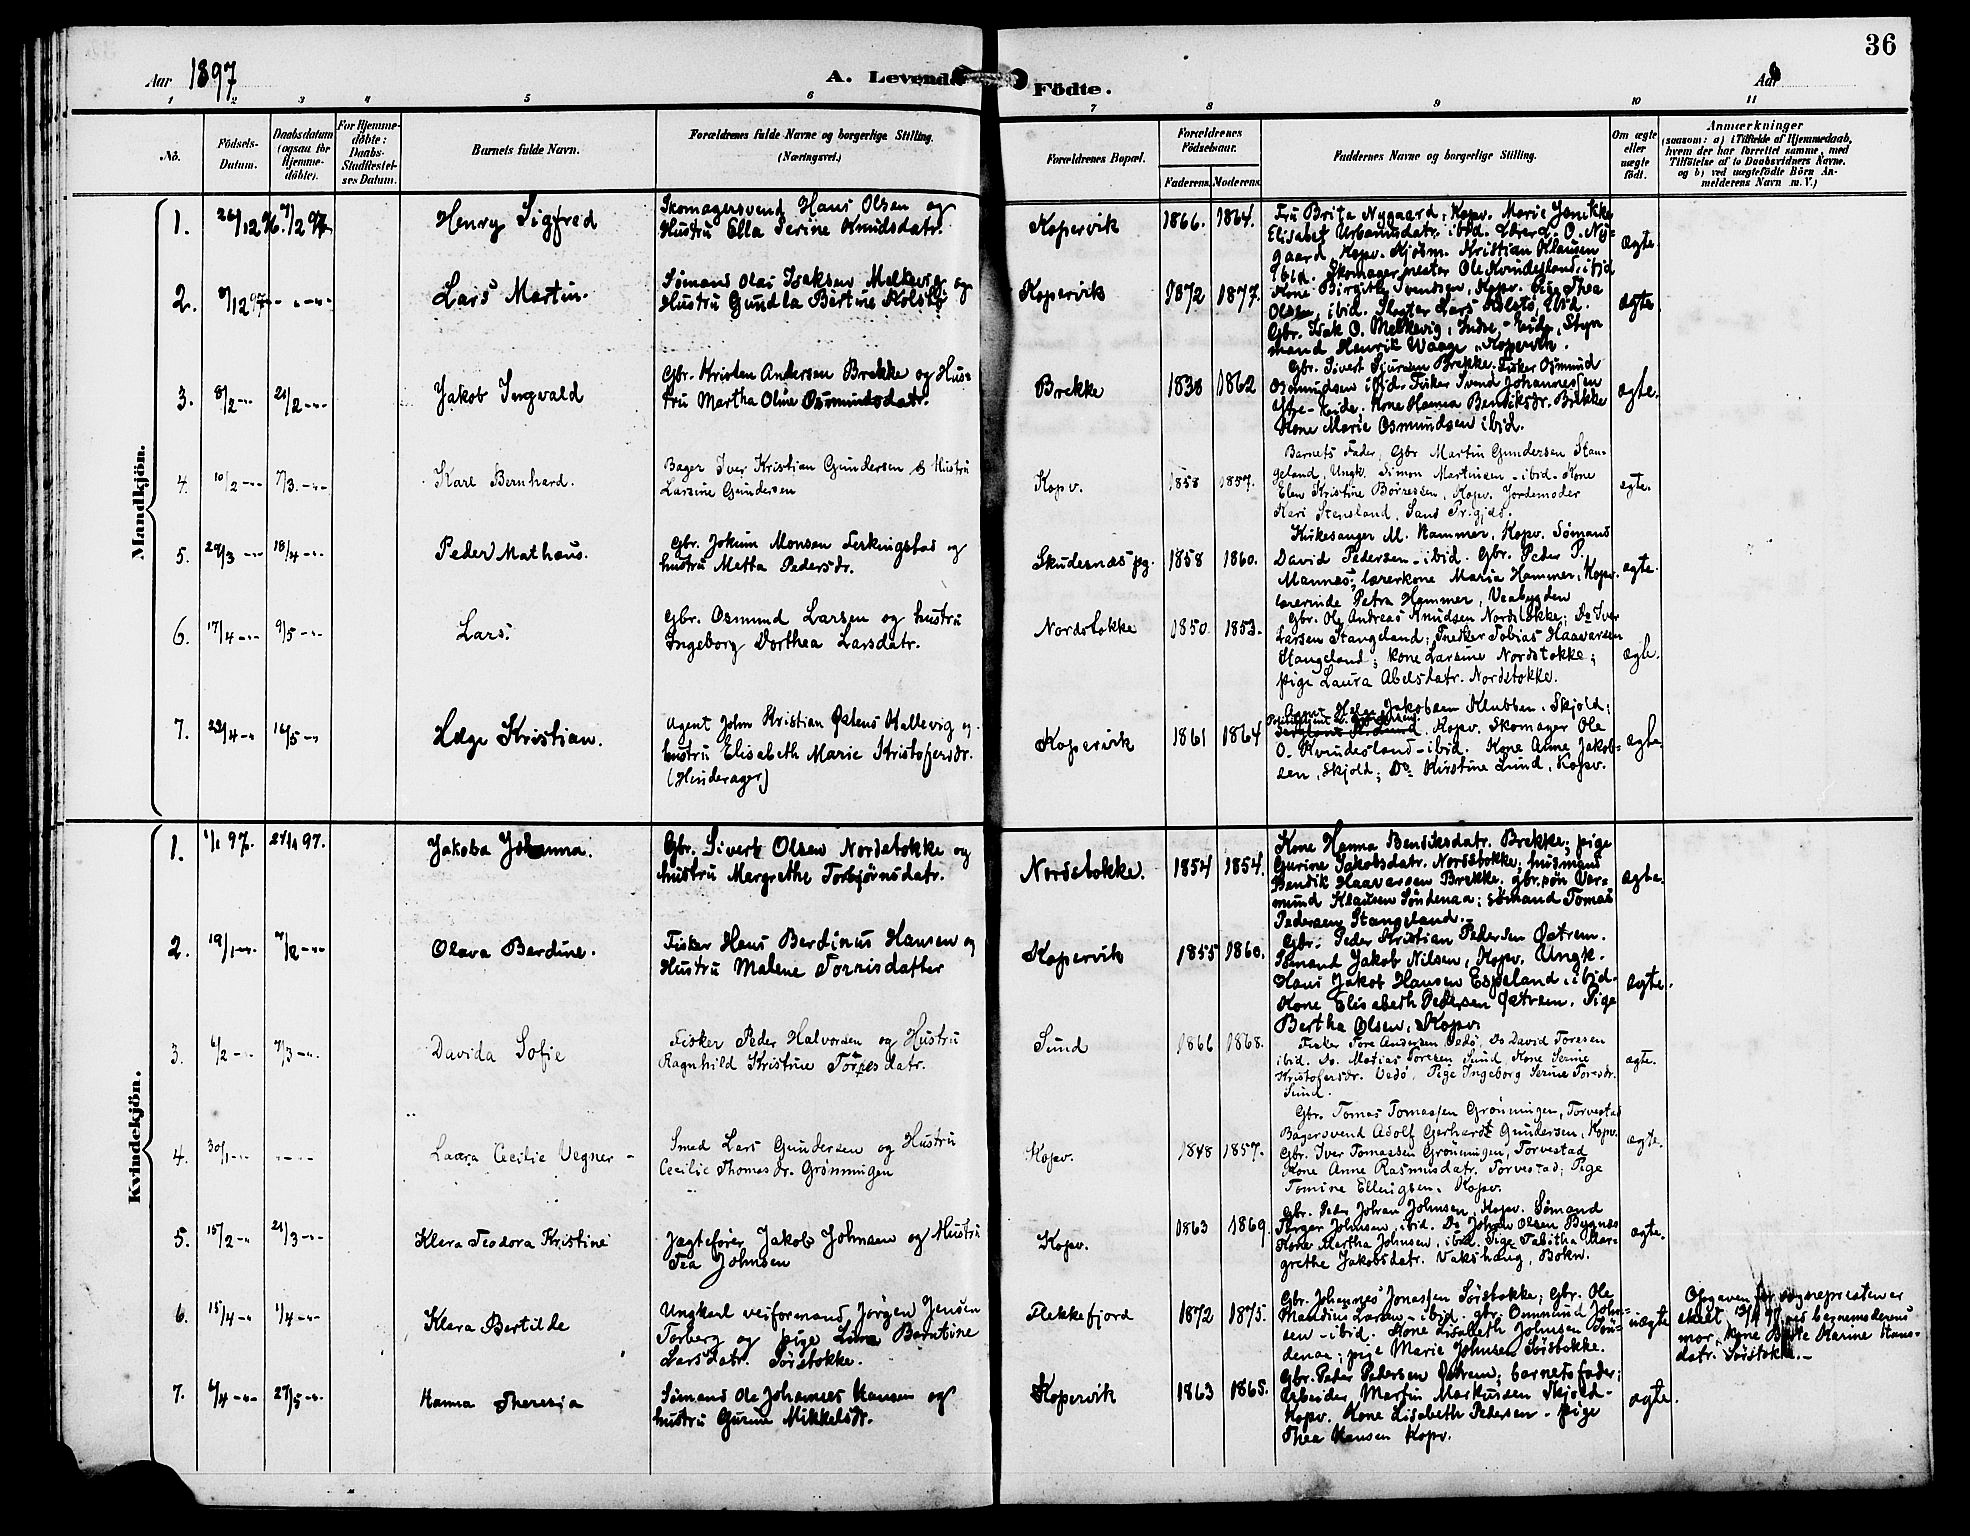 36
Aar 1897
A. Levende Födte.
Aar
1 2 3 4 5 6 7 8 9 10 11
No.
Födsels-Datum.
Daabsdatum (ogsaa for Hjemme-döbte).
For Hjemme-döbte: Daabs-Stadfæstel-ses Datum.
Barnets fulde Navn.
Forældrenes fulde Navne og borgerlige Stilling. (Næringsvei.)
Forældrenes Bopæl.
Forældrenes Födselsaar.
Faderens. Moderens.
Faddernes Navne og borgerlige Stilling.
Om ægte eller uægte födt.
Anmærkninger
(saasom: a) i Tilfælde af Hjemmedaab,
hvem der har forrettet samme, med
Tilföielse af to Daabsvidners Navne.
og b) ved uægtefödte Börn An-
melderens Navn m. V.)
Mandkjön.
1. 26/12 96. 7/2 97. Henry Sigfred
Skomagersvend Hans Olsen og
Hustru Ella Serine Knudsdatr.
Kopervik 1866. 1864.
Fru Brita Nygaard, Kopv. Marie Jenikke
Elisabet Urbanusdatr. ibid. Lærer O. Ny-
gaard Kopv. Kjøbm. Kristian Klausen
Ibid. Skomagermester Ole Kvindesland, ibid
ægte.
2. Lars Martin.
Sømand Olai Isaksen Melkevig og
Hustru Gundla Bertine Kolstø
Kopervik 1872 1877.
Kone Birgitte Svendsen, Kopv. Pige Thea
Olsen, ibid. Slagter Lars Kolstø, Ibid.
Gbr. Isak O. Melkevig, Indre-Eide, Styr
mand Henrik Waage, Kopervik.
ægte.
3. 8/2 21/2 Jakob Ingvald
Gbr. Kristen Andersen Brekke og Hus-
tru Martha Oline Osmundsdatr.
Brekke 1838 1862
Gbr. Sivert Sjursen Brekke. Fisker Osmund
Osmundsen ibid. Fisker Svend Johannesen
Ytre-Eide, Kone Hanna Bendiksdr. Brekke
Kone Marie Osmundsen ibid.
ægte.
4. 10/2 7/3. Karl Bernhard.
Bager Iver Kristian Gundersen & Hustru
Larsine Gundersen
Kopv. 1858 1857.
Barnets Fader, Gbr Martin Gundersen Stan-
geland, Ungk. Simon Martinsen - ibid. Kone
Elen Kristine Børresen, Kopv. Jordemoder
Kari Stensland, Sand Pr.gjæld.
ægte.
5. 29/3 18/4 Peder Mathæus.
Gbr. Jokum Monsen Ferkingstad og
hustru Metta Pedersdr.
Skudesnæs pg. 1858 1860.
Kirkesanger M. Hammer, Kopv. Sømand
David Pedersen - ibid. Gbr. Peder P.
Mannes; lærerkone Maria Hammer, Kopv.
lærerinde Petra Hammer, Veabygden
ægte.
6. 17/4 9/5 Lars.
Gbr. Osmund Larsen og hustru
Ingeborg Dorthea Larsdatr.
Nordstokke 1850. 1853.
Gbr. Ole Andreas Knudsen Nordstokke; Do Iver
Larsen Stangeland; Snekker Tobias Haavarsen
Stangeland; kone Larsine Nordstokke;
pige Laura Abelsdatr. Nordstokke.
ægte.
7. 22/4 16/5 Helge Kristian.
Agent John Kristian Østens Kallevig og
hustru Elisabeth Marie Kristofersdr.
(Hinderager)
Kopervik 1861 1864
Jakobsen Klubben, Skjold;
Kopv. Skomager Ole
O. Kvindesland - ibid. Kone Anne Jakob-
sen, Skjold; Do Kirstine Lund, Kopv.
ægte
Kvindekjön.
1. 1/1 97. Jakoba Johanna.
Gbr. Sivert Olsen Nordstokke og
hustru Margrethe Torbjørnsdatr.
Nordstokke. 1854 1854.
Kone Hanna Bendiksdatr. Brekke; pige
Gurine Jakobsdatr. Nordstokke; husmand
Bendik Haavarsen Brekke; gbr.søn Ver-
mund Klausen Søndenaa; sømand Tomas
Pedersen Stangeland.
ægte.
2. 19/1 7/2 Olava Berdine.
Fisker Hans Bertinus Hansen og
Hustru Malene Torrisdatter
Kopervik 1855 1860.
Gbr. Peder Kristian Pedersen Østrem.
Sømand Jakob Nilsen, Kopv. Ungk.
Hans Jakob Hansen Espeland, ibid.
Kone Elisabeth Pedersen Østrem. Pige
Bertha Olsen, Kopv.
ægte.
3. 6/2 7/3 Davida Sofie
Fisker Peder Halvorsen og Hustru
Ragnhild Kristine Torresdatr.
Sund 1866 1868.
Fisker Tore Andersen Vedø, Do David Toresen
ibid. Do. Matias Toresen Sund Kone Serine
Kristofersdr. Vedø, Pige Ingeborg Serine Toresdr.
Sund.
ægte.
4. 30/1 Laura Cecilie Vegner
Smed Lars Gundersen og Hustru
Cecilie Thomasdr. Grønningen
Kopv. 1848 1857.
Gbr. Tomas Tomassen Grønningen, Torvestad
Bagersvend Adolf Gerhardt Gundersen, Kopv.
Gbr. Iver Tomassen Grønningen, Torvestad
Kone Anne Rasmusdatr. Torvestad; Pige
Tomine Ellingsen. Kopv.
ægte.
5. 15/2 21/3 Klara Teodora Kristine
Jægtefører Jakob Johnsen og Hustru
Tea Johnsen
Kopv. 1863 1869
Gbr. Peder Johan Johnsen, Kopv. Sømand
Johnsen, ibid. Do Johan Olsen Bygnæs
Kone Martha Johnsen, ibid. Pige Tabitha Mar-
grethe Jakobsdatr. Vakshaug, Bokn.
ægte.
6. 15/4 Klara Bertilde
Ungkarl veiformand Jørgen Jensen
Torberg og pige Lina Berntine
Larsdatr. Sørstokke.
Flekkefjord 1872 1875.
Gbr. Johannes Jonassen Sørstokke; Gbr. Ole
Mandius Larsen - ibid. gbr. Ommund John-
sen - ibid. Kone Lisabeth Johnsen Søn-
denaa; pige Marie Johnsen Sørstokke.
uægte
Opgaven for sogneprestener
skeet ved barnemoderens
mor, kone Berte Marine Hans-
datr. Sørstokke.
7. 6/4 27/5 Hanna Theresia
Sømand Ole Johannes Hansen og
hustru Gurine Mikkelsdr.
Kopervik 1863 1865.
Gbr. Peder Pedersen Østrem; barnets fader;
Arbeider Martin Markussen Skjold-
Kopv. Kone Lisabeth Pedersen - pige
Thea Hansen Kopv.
ægte.